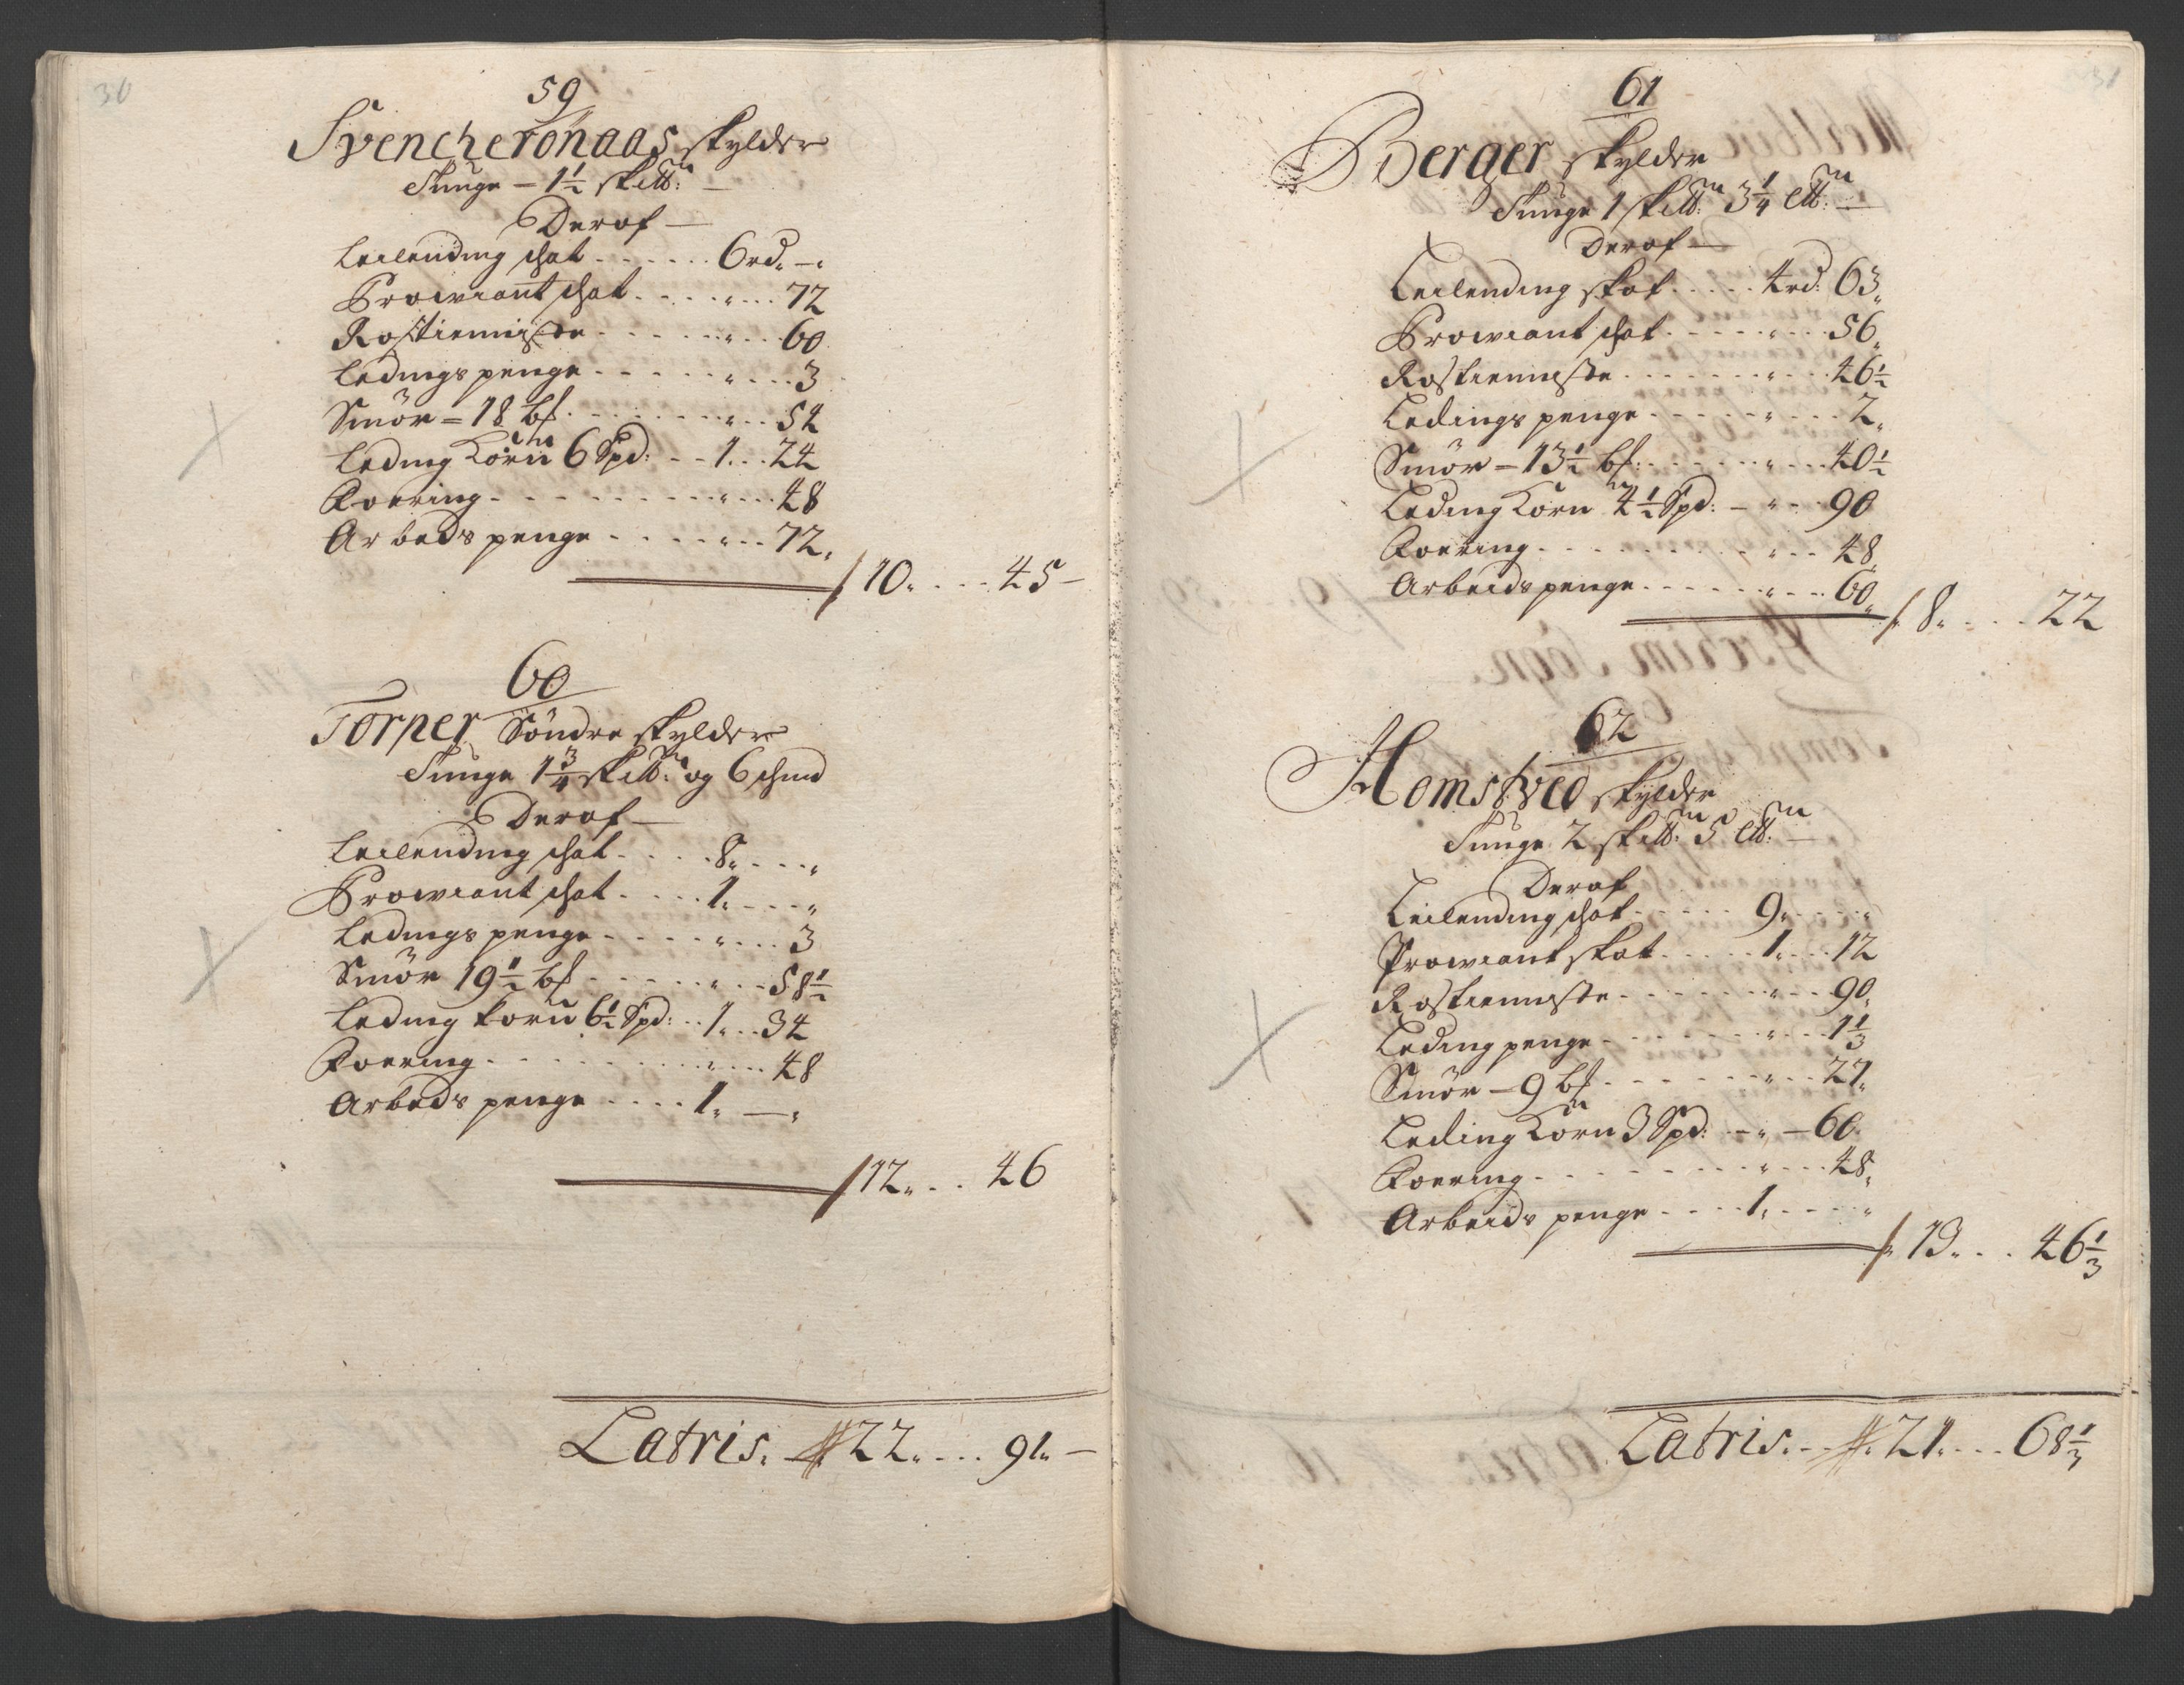 30
59
Svencheronaas skylder
Tunge – 1½ sk℔:
Derof –
Leilending schat . . . . . . 6 rd. –.
Prowiant schat . . . . „ . . . 72
Rostienniste . . . . . . „ . . . 60
Ledings penge . . . . . „ . . . 3
Smör = 18 bℓ. . . . . . . „ . . . 54
Leding Korn 6 Spd: . . 1 . . . 24
Foering . . . . . . . . . „ . . . 48
Arbeds penge . . . . „ . . . 72„
10„ . . . 45 –
60
Torper Söndre skylder
Tunge 1¾ sk℔: og 6 schind
Derof –
Leilending schat . . . . 8„ . . . „
Prowiant schat . . . . 1„ . . . „
Ledings penge . . . . . „ . . . 3
Smör 19½ bℓ . . . . . „ . . . 58½
Leding korn 6½ Spd: . . 1„ . . 34
Foering . . . . . . . . . „ . . . 48
Arbeds penge . . . . 1„ – „
12„ . . . 46
Latris. 22„ . . . 91„ –
31
61
Berger skylder
Tunge 1 sk℔: 3¼ l℔: –
Derof –
Leilending skat . . . . . 4 rd: 63„
Prowiant schat . . . . . „ . . . 56„
Rostienniste . . . . . . . „ . . . 46½
Ledings penge . . . . . „ . . . 2„
Smör – 13½ bℓ: . . . . . „ . . . 40½
Leding Korn 4½ Spd: – „ . . 90
Foering . . . . . . . . . „ . . . 48„
Arbeids penge . . . . . . „ . . . 60„
8„ . . . 22
62
Homstved skylder
Tunge 2 sk℔: 5 l℔: –
Derof
Leilending schat . . . . . 9„ . . . „
Prowiant skat . . . . . 1„ . . . 12
Rostienniste . . . . . . . „ . . . 90„
Leding penge . . . . . . . „ . . . 1⅓
Smör – 9 bℓ . . . . . . . „ . . . 27„
Leding Korn 3 Spd: – „ – 60
Foering . . . . . . . . . „ . . . 48„
Arbeids penge . . . . 1„ . . . „
13„ . . . 46⅓
Latris. 21„ . . . 68⅓